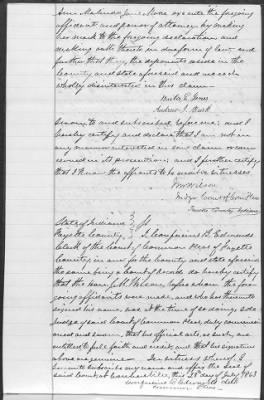 Ann Malinda Jane Nore execute the foregoing
affidavit and power of attorney by making
her mark to the foregoing declaration and
making oath thereto in due form of law and
further that they the deponents reside in the
County and state aforesaid and are each
wholly disinterested in this claim
Jones
Andrew J.
Sworn to and subscribed before me; and I
hereby certify and declare that I am not in
any manner interested in said claim or con-
cerned in its prosecution; and I further certify
that I know the affiants to be credible witnesses
Wilson
Judge Court of Com Pleas
Fayette County Indiana
State of Indiana
Fayette County, I
Clerk of the Court of Common Pleas of Fayette
County, in and for the County and state aforesaid
the same being a County of record do hereby certify
that the Hon. J. M. Wilson, before whom the fore-
going affidavits were made, and who has thereunto
signed his name, was at the time of so doing sole
Judge of said Court of Common Pleas, duly commission-
ed and sworn, that his official acts, as such, are
entitled to full faith and credit, and that his signature
above is genuine. In witness whereof I
hereunto subscribe my name and affix the seal of
said Court, at Connersville, this day of July 1863
Clk
Common Pleas